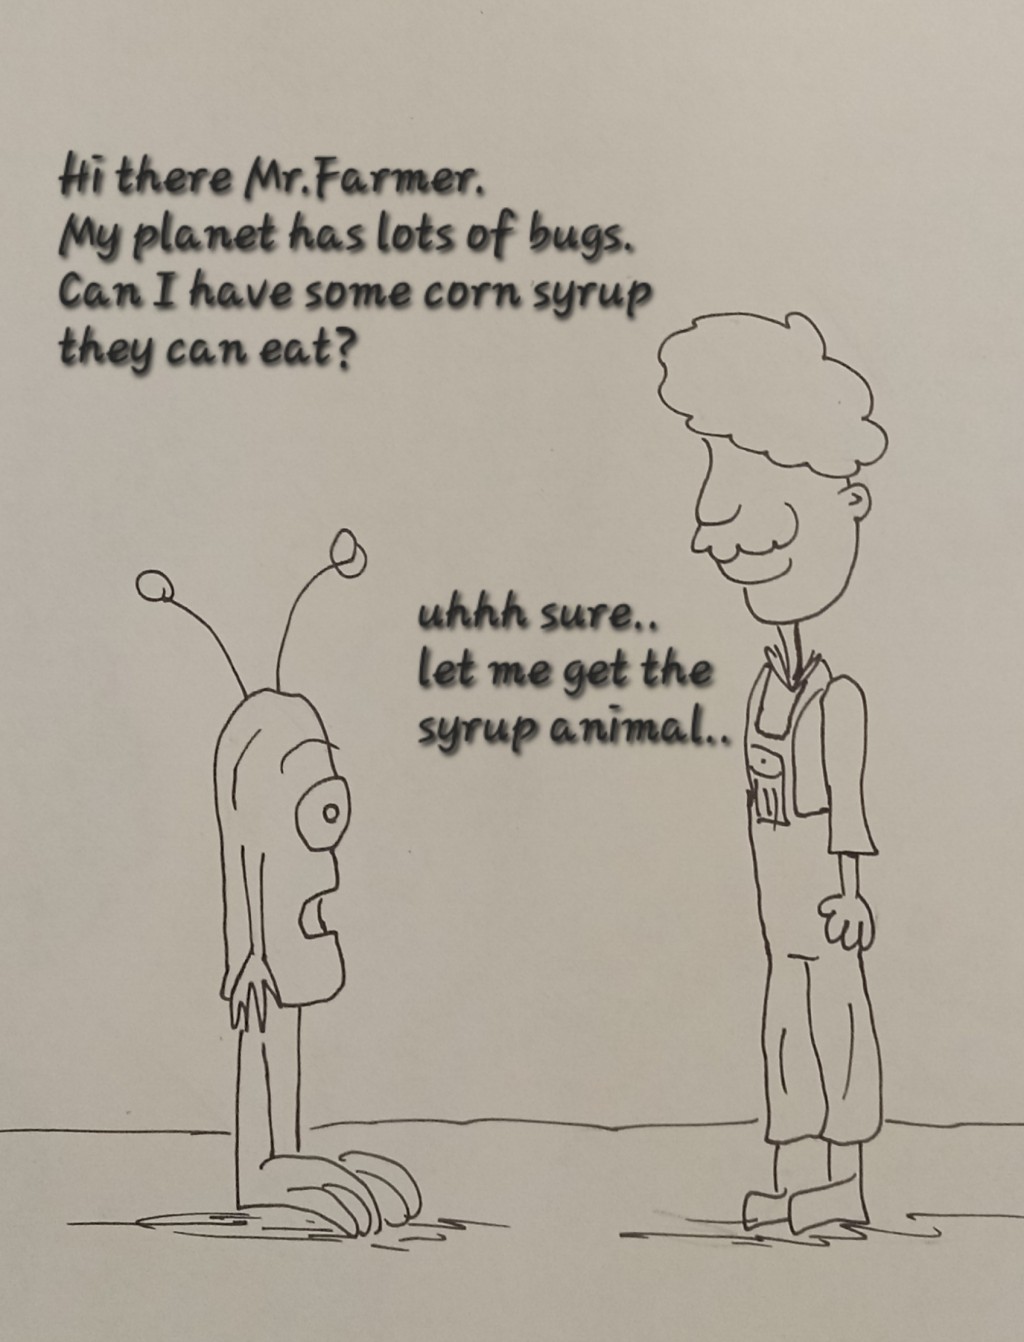 Hi there Mr.Farmer.
My planet has lots of bugs.
Can I have some corn syrup
they can eat?
uhhh sure..
let me get the
syrup animal..